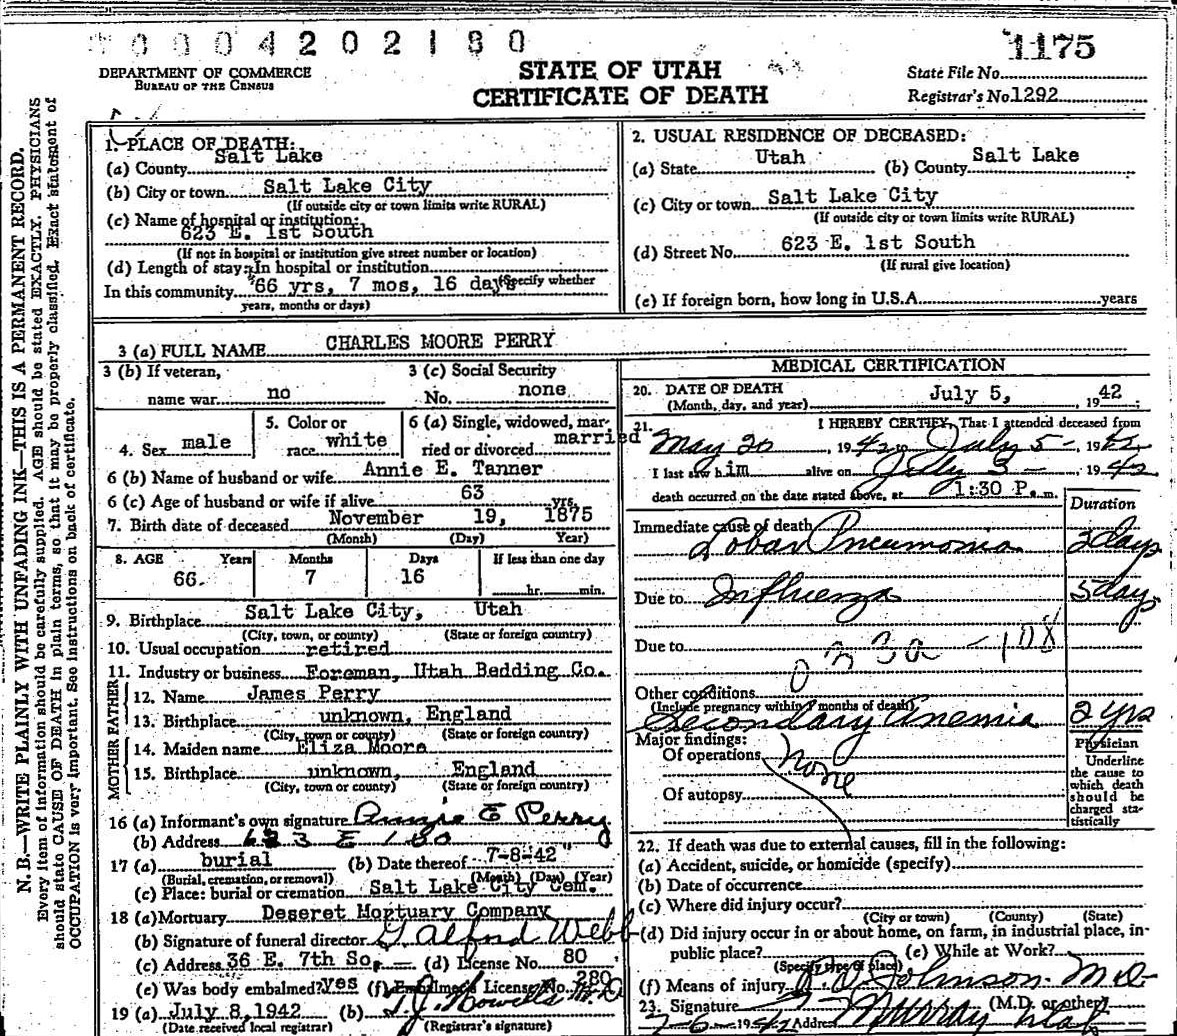 0004202180
1175
DEPARTMENT OF COMMERCE
BUREAU OF THE CENSUS
STATE OF UTAH
CERTIFICATE OF DEATH
State File No.
Registrar's No. 1292
N. B.—WRITE PLAINLY WITH UNFADING INK—THIS IS A PERMANENT RECORD.
Every item of information should be carefully supplied. AGE should be stated EXACTLY. PHYSICIANS
should state CAUSE OF DEATH in plain terms, so that it may be properly classified. Exact statement of
OCCUPATION is very important. See instructions on back of certificate.
1. PLACE OF DEATH:
(a) County Salt Lake
(b) City or town Salt Lake City
(If outside city or town limits write RURAL)
(c) Name of hospital or institution:
623 E. 1st South
(If not in hospital or institution give street number or location)
(d) Length of stay: In hospital or institution
In this community 66 yrs, 7 mos, 16 days (Specify whether
years, months or days)
2. USUAL RESIDENCE OF DECEASED:
(a) State Utah (b) County Salt Lake
(c) City or town Salt Lake City
(If outside city or town limits write RURAL)
(d) Street No. 623 E. 1st South
(If rural give location)
(e) If foreign born, how long in U.S.A. years
3 (a) FULL NAME CHARLES MOORE PERRY
3 (b) If veteran,
name war no
3 (c) Social Security
No. none
4. Sex male
5. Color or
race white
6 (a) Single, widowed, mar-
ried or divorced married
6 (b) Name of husband or wife Annie E. Tanner
6 (c) Age of husband or wife if alive 63 yrs.
7. Birth date of deceased November 19, 1875
(Month) (Day) Year)
8. AGE Years Months Days If less than one day
66. 7 16 hr. min.
9. Birthplace Salt Lake City, Utah
(City, town, or county) (State or foreign country)
10. Usual occupation retired
11. Industry or business Foreman, Utah Bedding Co.
FATHER
12. Name James Perry
13. Birthplace unknown, England
(City, town or county) (State or foreign country)
MOTHER
14. Maiden name Eliza Moore
15. Birthplace unknown, England
(City, town or county) (State or foreign country)
16 (a) Informant's own signature Annie E Perry
(b) Address 623 E 1 So
17 (a) burial (b) Date thereof 7-8-42
(Burial, cremation, or removal) (Month) (Day) (Year)
(c) Place: burial or cremation Salt Lake City Cem.
18 (a) Mortuary Deseret Mortuary Company
(b) Signature of funeral director G. Alford Webb
(c) Address 36 E. 7th So. (d) License No. 80
(e) Was body embalmed? yes (f) Embalmer's License No. 280
19 (a) July 8, 1942 (b) T.J. Howells M.D.
(Date received local registrar) (Registrar's signature)
MEDICAL CERTIFICATION
20. DATE OF DEATH
(Month, day, and year) July 5, 1942
21. I HEREBY CERTIFY, That I attended deceased from
May 20, 1942 July 5 - 1942
I last saw him alive on July 3 - , 1942
death occurred on the date stated above, at 1:30 P. m.
Duration
Immediate cause of death
Lobar Pneumonia 3 days
Due to Influenza 5 days
Due to 033a - 108
Other conditions
(Include pregnancy within 3 months of death)
Secondary Anemia 2 yrs
Major findings:
Of operations none
Of autopsy
Physician
Underline
the cause to
which death
should be
charged sta-
tistically
22. If death was due to external causes, fill in the following:
(a) Accident, suicide, or homicide (specify)
(b) Date of occurrence
(c) Where did injury occur?
(City or town) (County) (State)
(d) Did injury occur in or about home, on farm, in industrial place, in-
public place? (e) While at Work?
(Specify type of place)
(f) Means of injury
23. Signature Johnson M.D. (M.D. or other)
1942 Address Murray Utah